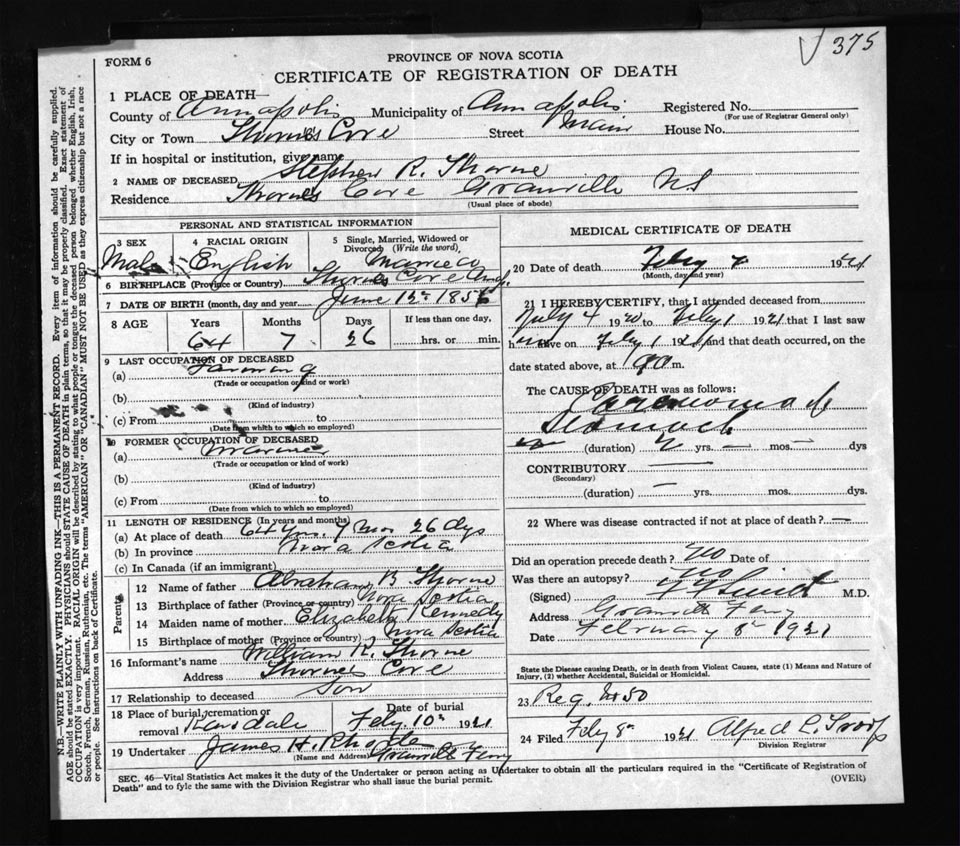 375
FORM 6
PROVINCE OF NOVA SCOTIA
CERTIFICATE OF REGISTRATION OF DEATH
1 PLACE OF DEATH—
County of Annapolis Municipality of Annapolis Registered No.
(For use of Registrar General only)
City or Town Thornes Cove Street Main House No.
If in hospital or institution, give name
2 NAME OF DECEASED Stephen R. Thorne
Residence Thornes Cove Granville NS
(Usual place of abode)
PERSONAL AND STATISTICAL INFORMATION
3 SEX Male
4 RACIAL ORIGIN English
5 Single, Married, Widowed or Divorced (Write the word) Married
6 BIRTHPLACE (Province or Country) Thornes Cove Anap.
7 DATE OF BIRTH (month, day and year) June 12th 1856
8 AGE Years Months Days If less than one day,
64 7 26 hrs. or min.
9 LAST OCCUPATION OF DECEASED
(a) Farming
(Trade or occupation or kind or work)
(b)
(Kind of industry)
(c) From to
(Date from which to which so employed)
10 FORMER OCCUPATION OF DECEASED
(a) Mariner
(Trade or occupation or kind of work)
(b)
(Kind of industry)
(c) From to
(Date from which to which so employed)
11 LENGTH OF RESIDENCE (In years and months)
(a) At place of death 64 Yrs. 7 Mos 26 dys
(b) In province Nova Scotia
(c) In Canada (if an immigrant)
Parents
12 Name of father Abraham B. Thorne
13 Birthplace of father (Province or country) Nova Scotia
14 Maiden name of mother Elizabeth Kennedy
15 Birthplace of mother (Province or country) Nova Scotia
16 Informant's name William R. Thorne
Address Thornes Cove
17 Relationship to deceased Son
18 Place of burial, cremation or removal Karsdale Date of burial Feby. 10th 1921
19 Undertaker James H.
(Name and Address) Granville Ferry
MEDICAL CERTIFICATE OF DEATH
20 Date of death Feby 1921
(Month, day and year)
21 I HEREBY CERTIFY, that I attended deceased from
July 4 1920 to Feby 1 1921 that I last saw
him alive on Feby 1 1921 and that death occurred, on the
date stated above, at m.
The CAUSE OF DEATH was as follows:
Carcinoma of
Stomach
(duration) yrs. — mos. — dys
CONTRIBUTORY —
(Secondary)
(duration) — yrs. mos. dys.
22 Where was disease contracted if not at place of death? —
Did an operation precede death? No Date of
Was there an autopsy? No
(Signed) M.D.
Address Granville Ferry
Date February 8th 1921
State the Disease causing Death, or in death from Violent Causes, state (1) Means and Nature of
Injury, (2) whether Accidental, Suicidal or Homicidal.
23 Reg. No 50
24 Filed Feby 8th 1921 Alfred L.
Division Registrar
SEC. 46—Vital Statistics Act makes it the duty of the Undertaker or person acting as Undertaker to obtain all the particulars required in the "Certificate of Registration of
Death" and to fyle the same with the Division Registrar who shall issue the burial permit.
(OVER)
N.B.—WRITE PLAINLY WITH UNFADING INK—THIS IS A PERMANENT RECORD. Every item of information should be carefully supplied.
AGE should be stated EXACTLY. PHYSICIANS should STATE CAUSE OF DEATH in plain terms, so that it may be properly classified. Exact statement of
OCCUPATION is very important. RACIAL ORIGIN will be described by stating to what people or tongue the deceased person belonged whether English, Irish,
Scotch, French, German, Russian, Ruthenian, etc. The terms "AMERICAN" OR "CANADIAN" MUST NOT BE USED as they express citizenship but not a race
or people. See instructions on back of Certificate.